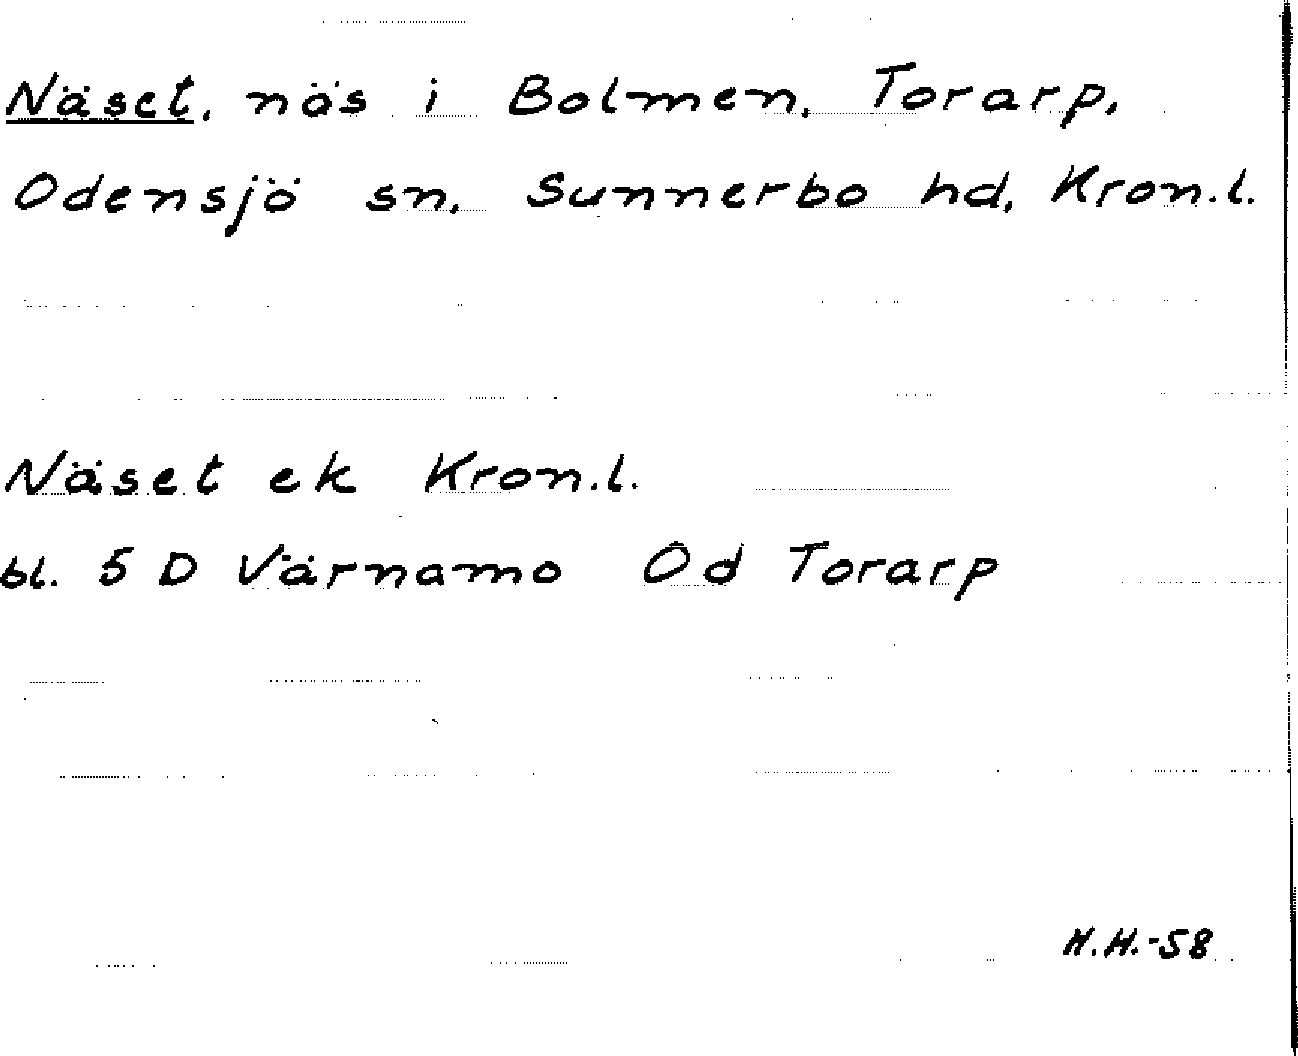 Näset, näs i Bolmen, Torarp,
Odensjö sn, Sunnerbo hd, Kron.l.
Näset ek Kron.l.
bl. 5 D Värnamo Od Torarp
H.H.-58